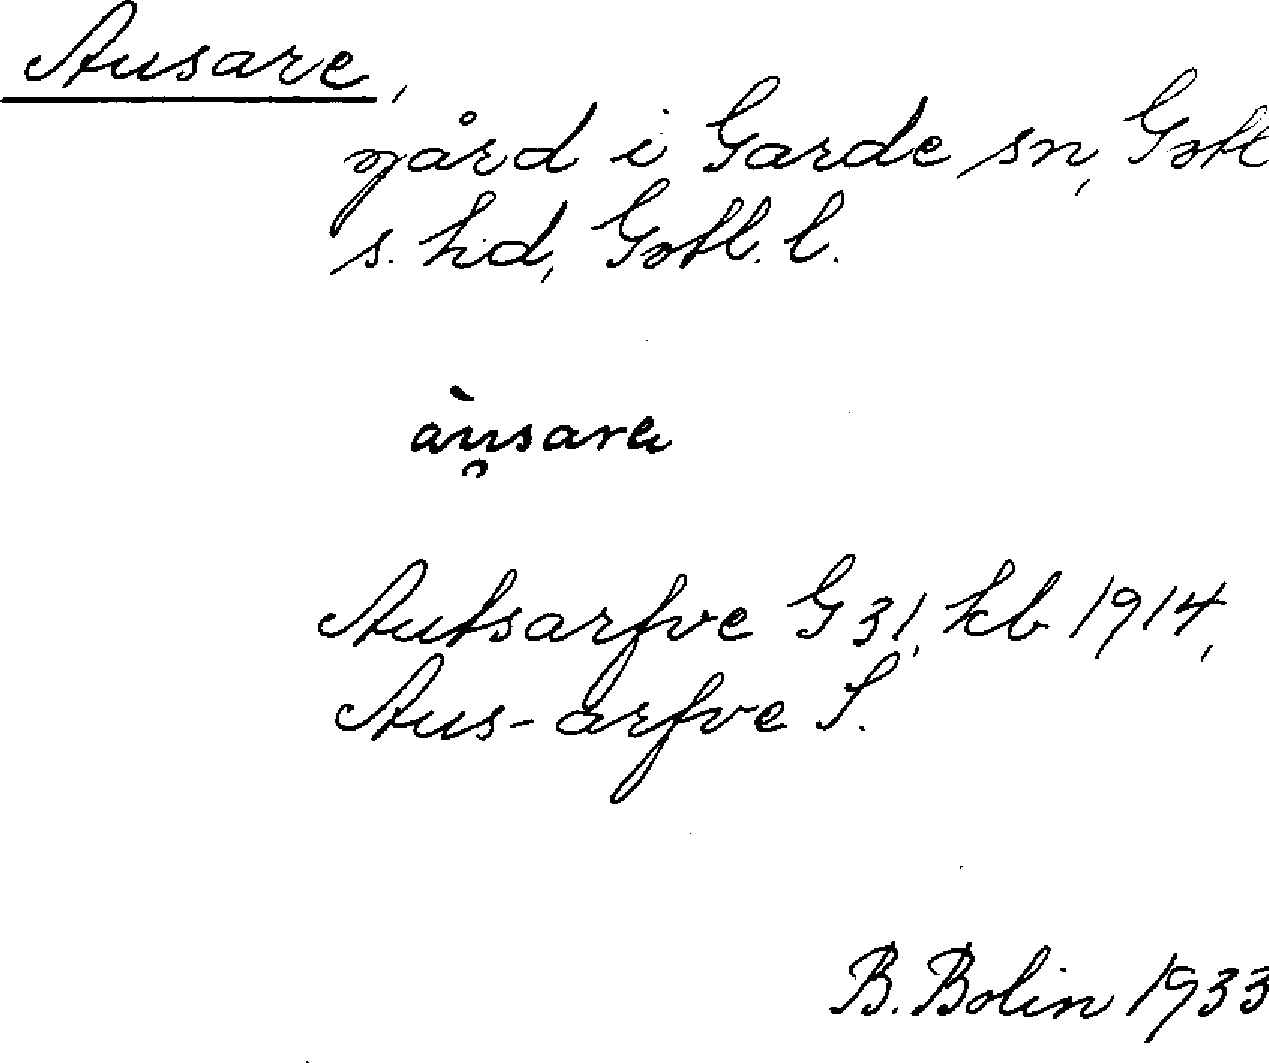 Ausare,
gård i Garde sn, Gotl
s. hd, Gotl. l.
àu̯sarа
Autsarfve G 31, kb 1914,
Aus-arfve S.
B. Bolin 1933